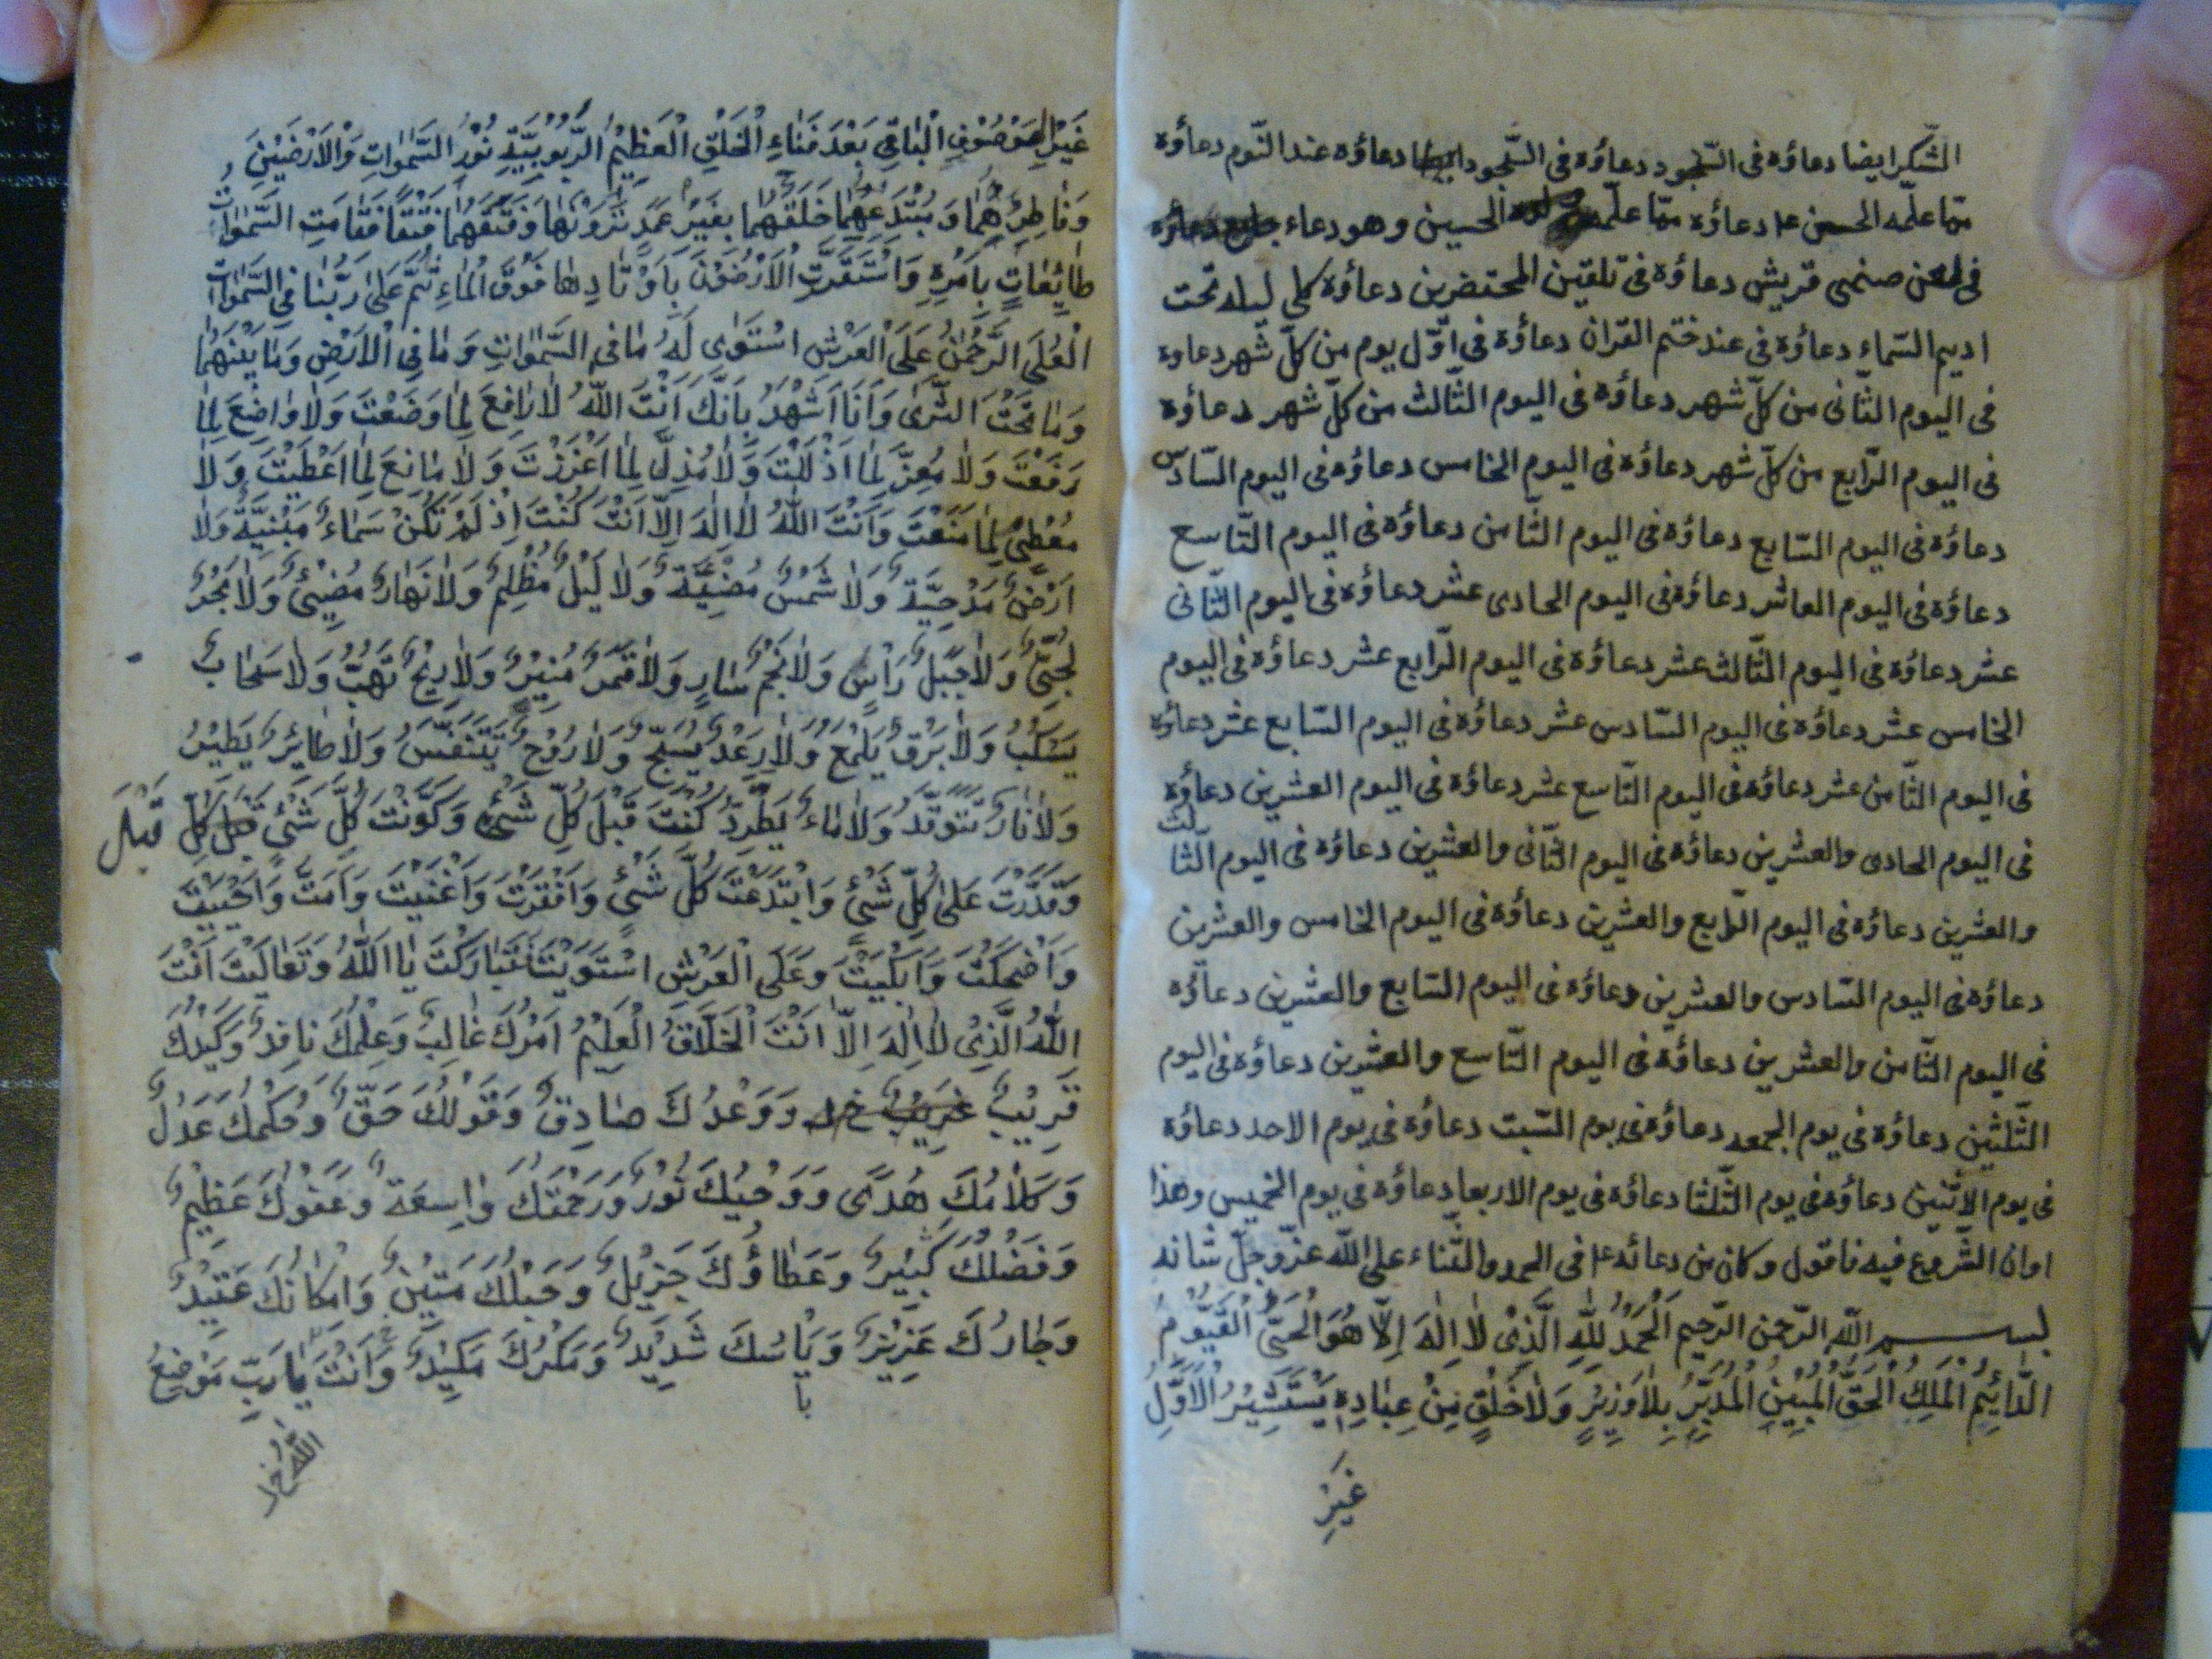 الشّكر ايضا دعاؤه فى السّجود دعاؤه فى السّجود ايضا دعاؤه عند النّوم دعاؤه
ممّا علّمه الحسن ع‍ا دعاؤه ممّا علّمه الحسين وهو دعاء
فى لعن صنمى قريش دعاؤه فى تلقين المحتضرين دعاؤه كل ليلة تحت
اديم السّماء دعاؤه فى عند ختم القران دعاؤه فى اوّل يوم من كلّ شهر دعاوه
فى اليوم الثّانى من كلّ شهر دعاؤه فى اليوم الثّالث من كلّ شهر دعاؤه
فى اليوم الرّابع من كلّ شهر دعاؤه فى اليوم الخامس دعاؤه فى اليوم السّادس
دعاؤه فى اليوم السّابع دعاؤه فى اليوم الثّامن دعاؤه فى اليوم التّاسع
دعاؤه فى اليوم العاشر دعاؤه فى اليوم الحادى عشر دعاؤه فى اليوم الثّانى
عشر دعاؤه فى اليوم الثّالث عشر دعاؤه فى اليوم الرّابع عشر دعاؤه فى اليوم
الخامس عشر دعاؤه فى اليوم السّادس عشر دعاؤه فى اليوم السّابع عشر دعاؤه
فى اليوم الثّامن عشر دعاؤه فى اليوم التّاسع عشر دعاؤه فى اليوم العشرين دعاؤه
فى اليوم الحادى والعشرين دعاؤه فى اليوم الثّانى والعشرين دعاؤه فى اليوم الثّالث
والعشرين دعاؤه فى اليوم الرّابع والعشرين دعاؤه فى اليوم الخامس والعشرين
دعاؤه فى اليوم السّادس والعشرين دعاؤه فى اليوم السّابع والعشرين دعاؤه
فى اليوم الثّامن والعشرين دعاؤه فى اليوم التّاسع والعشرين دعاؤه فى اليوم
الثّلثين دعاؤه فى يوم الجمعه دعاؤه فى يوم السّبت دعاؤه فى يوم الاحد دعاؤه
فى يوم الاثنين دعاؤه فى يوم الثّلثا دعاؤه فى يوم الاربعا دعاؤه فى يوم الخميس وهذا
اوان الشّروع فيه فاقول وكان من دعائه ع‍ا فى الحمد والثّناء على اللّه عزّ وجلّ شانه
بسم اللّه الرّحمن الرّحيم اَلْحَمْدُ لِلّهِ الَّذِىْ لاٰ اِلٰهَ اِلاّٰ هُوَ الْحَىُّ الْقَيُّوْمُ
الدّٰائِمُ الْمَلِكُ الْحَقُّ الْمُبِيْنُ الْمُدَبِّرُ بِلاٰ وَزِيْرٍ وَلاٰ خَلْقٍ مِنْ عِبٰادِهِ يَسْتَشِيْرُ الْاَوَّلُ
غَيْرُ
غَيْرُ الْمَوْصُوْفِ الْبٰاقِى بَعْدَ فَنٰاءِ الْخَلْقِ الْعَظِيْمُ الرُّبُوْبِيَّةِ نُوْرُ السَّمٰوٰاتِ وَالْاَرَضِيْنَ
وَفٰاطِرُهُمٰا وَمُبْتَدِعُهُمٰا خَلَقَهُمٰا بِغَيْرِ عَمَدٍ تَرَوْنَهٰا وَفَتَقَهُمٰا فَتْقًا فَقٰامَتِ السَّمٰوٰاتُ
طٰائِعٰاتٍ بِاَمْرِهِ وَاسْتَقَرَّتِ الْاَرَضُوْنَ بِاَوْتٰادِهٰا فَوْقَ الْمٰاءِ ثُمَّ عَلٰى رَبُّنٰا فِى السَّمٰوٰاتِ
الْعُلَى الرَّحْمٰنُ عَلَى الْعَرْشِ اسْتَوٰى لَهُ مٰا فِى السَّمٰوٰاتِ وَمٰا فِى الْاَرْضِ وَمٰا بَيْنَهُمٰا
وَمٰا تَحْتَ الثَّرٰى وَاَنَا اَشْهَدُ بِاَنَّكَ اَنْتَ اللّٰهُ لاٰ رٰافِعَ لِمٰا وَضَعْتَ وَلاٰ وٰاضِعَ لِمٰا
رَفَعْتَ وَلاٰ مُعِزَّ لِمٰا اَذْلَلْتَ وَلاٰ مُذِلَّ لِمٰا اَعْزَزْتَ وَلاٰ مٰانِعَ لِمٰا اَعْطَيْتَ وَلاٰ
مُعْطِىَ لِمٰا مَنَعْتَ وَاَنْتَ اللّٰهُ لاٰ اِلٰهَ اِلاّٰ اَنْتَ كُنْتَ اِذْ لَمْ تَكُنْ سَمٰاءٌ مَبْنِيَّةٌ وَلاٰ
اَرْضٌ مَدْحِيَّةٌ وَلاٰ شَمْسٌ مُضِيْئَةٌ وَلاٰ لَيْلٌ مُظْلِمٌ وَلاٰ نَهٰارٌ مُضِيْئٌ وَلاٰ بَحْرٌ
لُجِّىٌّ وَلاٰ جَبَلٌ رٰاسٍ وَلاٰ نَجْمٌ سٰارٍ وَلاٰ قَمَرٌ مُنِيْرٌ وَلاٰ رِيْحٌ تَهُبُّ وَلاٰ سَحٰابٌ
يَسْكُبُ وَلاٰ بَرْقٌ يَلْمَعُ وَلاٰ رَعْدٌ يُسَبِّحُ وَلاٰ رُوْحٌ يَتَنَفَّسُ وَلاٰ طٰائِرٌ يَطِيْرُ
وَلاٰ نٰارٌ تَتَوَقَّدُ وَلاٰ مٰاءٌ يَطَّرِدُ كُنْتَ قَبْلَ كُلِّ شَىْئٍ وَكَوَّنْتَ كُلَّ شَىْئٍ قَبْلَ كُلِّ
قَبْلَ
وَقَدَرْتَ عَلٰى كُلِّ شَىْئٍ وَابْتَدَعْتَ كُلَّ شَىْئٍ وَاَفْقَرْتَ وَاَغْنَيْتَ وَاَمَتَّ وَاَحْيَيْتَ
وَاَضْحَكْتَ وَاَبْكَيْتَ وَعَلَى الْعَرْشِ اسْتَوَيْتَ فَتَبٰارَكْتَ يٰا اَللّٰهُ وَتَعٰالَيْتَ اَنْتَ
اللّٰهُ الَّذِىْ لاٰ اِلٰهَ اِلاّٰ اَنْتَ الْخَلاَّقُ الْعَلِيْمُ اَمْرُكَ غٰالِبٌ وَعِلْمُكَ نٰافِذٌ وَكَيْدُكَ
قَرِيْبٌ غَرِيْبٌ خ‍ل وَوَعْدُكَ صٰادِقٌ وَقَوْلُكَ حَقٌّ وَحُكْمُكَ عَدْلٌ
وَكَلاٰمُكَ هُدًى وَوَحْيُكَ نُوْرٌ وَرَحْمَتُكَ وٰاسِعَةٌ وَعَفْوُكَ عَظِيْمٌ
وَفَضْلُكَ كَثِيْرٌ وَعَطٰاؤُكَ جَزِيْلٌ وَحَبْلُكَ مَتِيْنٌ وَاِمْكٰانُكَ عَتِيْدٌ
وَجٰارُكَ عَزِيْزٌ وَبَاْسُكَ شَدِيْدٌ وَمَكْرُكَ مَكِيْدٌ وَاَنْتَ يٰا رَبِّ مَوْضِعُ
با
اللّٰهُ خ‍ل